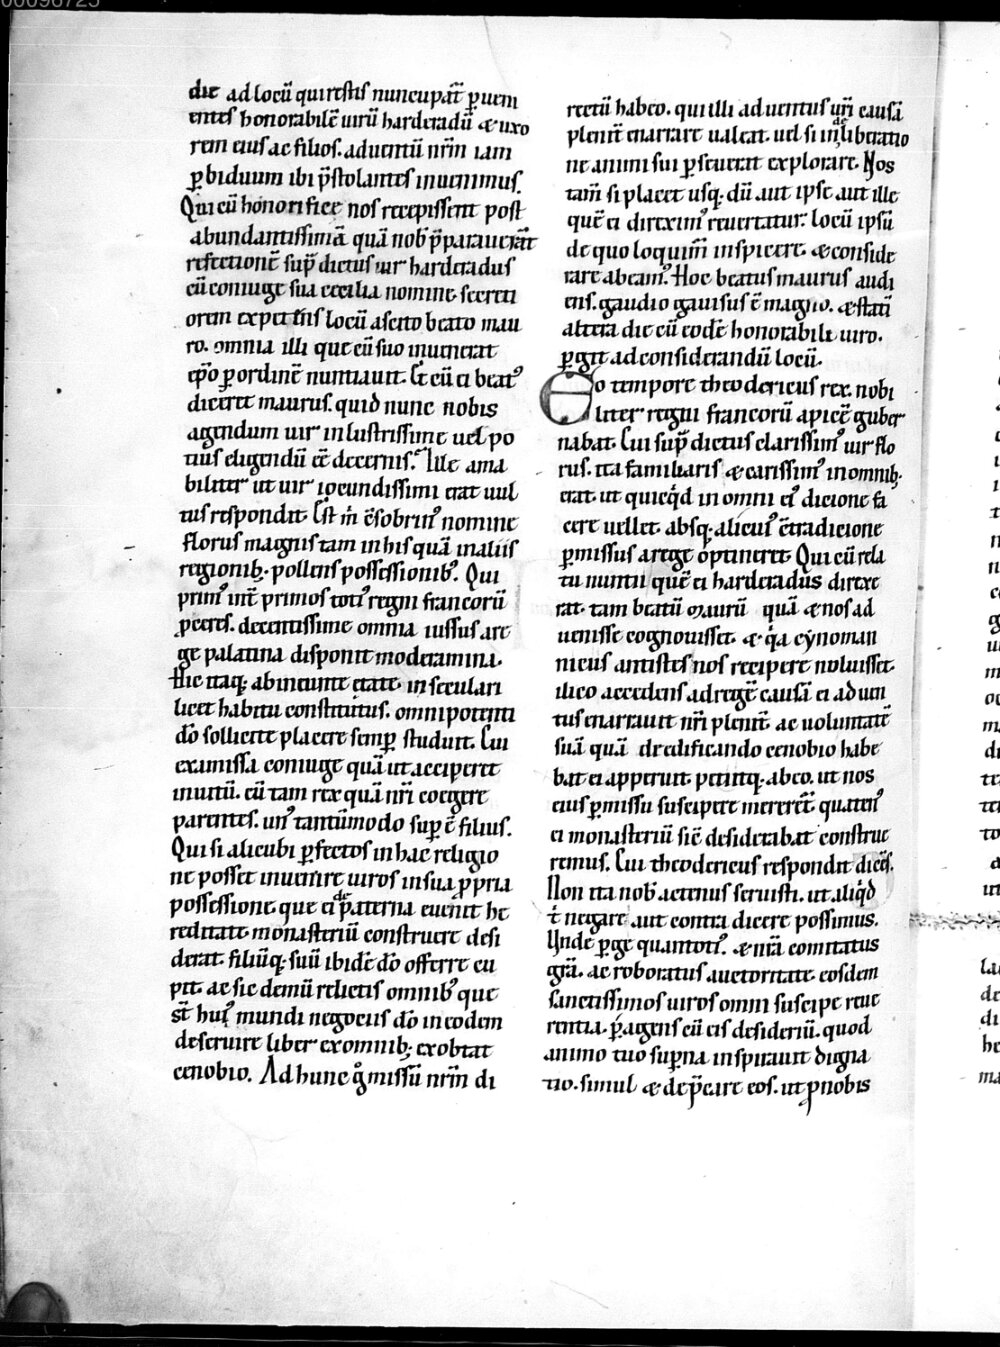 00096725
die ad locū qui restis nuncupat̄ p̱ueni
entes honorabilē uirū harderadū & uxo
rem eius ac filios. aduentū nr̄m iam
p̱ biduum ibi p̄stolantes inuenimus.
Qui cū honorifice nos recepissent post
abundantissimā quā nob̄ p̄parauerāt
refectionē sup̄dictus uir harderadus
cū coniuge sua cecilia nomine secreti
orem expetens locū ascito beato mau
ro. omnia illi que cū suo inuenerat
ep̄o p̱ ordinē nuntiauit. Et cū ei beatꝰ
diceret maurus. quid nunc nobis
agendum uir inlustrissime uel po
tius eligendū eē decernis. Ille ama
biliter ut uir iocundissimi erat uul
tus respondit. Est m̄ c̄sobrinꝰ nomine
florus magnis tam in his quā in aliis
regionib; pollens possessionibꝰ. Qui
primꝰ int̄ primos totiꝰ regni francorū
p̱ceres. decentissime omnia iussus a re
ge palatina disponit moderamina.
Hic itaq; ab ineunte etate. in seculari
licet habitu constitutus. omnipotenti
dō sollicite placere semp̱ studuit. Cui
ex amissa coniuge quā ut acciperet
inuitū. eū tam rex quā nr̄i coegere
parentes. unꝰ tantūmodo sup̱ ē filius.
Qui si alicubi p̱fectos in hac religio
ne posset inuenire uiros in sua p̱pria
possessione. que ei de paterna euenit he
reditate monasteriū construere desi
derat. filiūq; suū ibidē dō offerre cu
pit. ac sic demū relictis omnibꝰ que
st̄ huiꝰ mundi negociis dō in eodem
deseruire liber ex omnib; exobtat
cenobio. Ad hunc g̊ missū nr̄m di
rectū habeo. qui illi aduentus ur̄i causā
plenit̄ enarrare ualeat. uel si in de liberatio
ne animi sui p̱seuerat explorare. Nos
tam̄ si placet usq; dū aut ipse aut ille
quē ei direximꝰ reuertatur. locū ipsū
de quo loquim̄ inspicere. & conside
rare abeamꝰ. Hoc beatus maurus audi
ens. gaudio gauisus ē magno. & statī
altera die cū eodē honorabili uiro.
p̱git ad considerandū locū.
Eo tempore theodericus rex. nobi
liter regni francorū apicē guber
nabat. Cui sup̄dictus clarissimꝰ uir flo
rus. ita familiaris & carissimꝰ in omnib;
erat. ut quicq̊d in omni eiꝰ dicione fa
cere uellet absq; alicuiꝰ c̄tradicione
p̱missus a rege optineret. Qui cū rela
tu nuntii quē ei harderadus direxe
rat. tam beatū maurū quā & nos ad
uenisse cognouisset. & q̊a cynoman
nicus antistes nos recipere noluisset.
ilico accedens ad regē causā ei aduen
tus enarrauit nr̄i plenit̄ ac uoluntatē
suā quā de edificando cenobio habe
bat ei apperuit. petiitq; ab eo. ut nos
eius p̱missu suscipere mereret̄. quatenꝰ
ei monasteriū sic̄ desiderabat construe
remus. Cui theodericus respondit dicēs.
Non ita nob̄ actenus seruisti. ut aliq̊d
t̄ negare aut contra dicere possimus.
Unde p̱ge quantotiꝰ. & nr̄a comitatus
grā. ac roboratus auctoritate. eosdem
sanctissimos uiros omni suscipe reue
rentia. p̱agens cū eis desideriū. quod
animo tuo sup̱na inspirauit digna
tio. simul & dep̄care eos. ut p̱ nobis